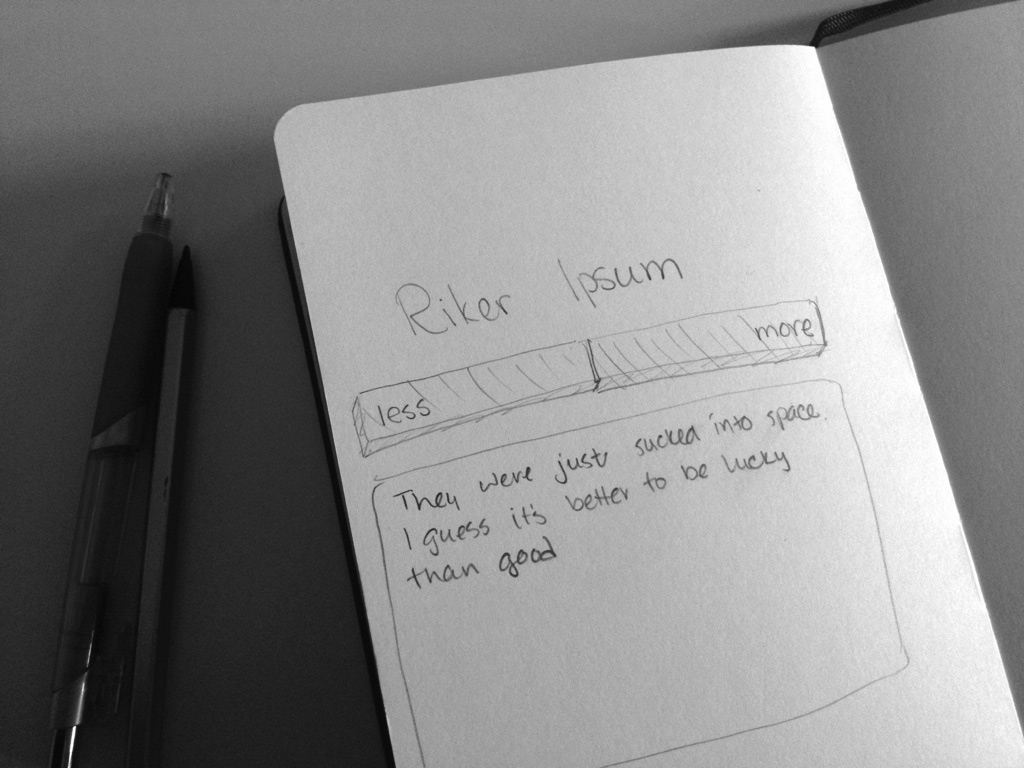 Riker Ipsum
less more
They were just sucked into space.
I guess it's better to be lucky
than good